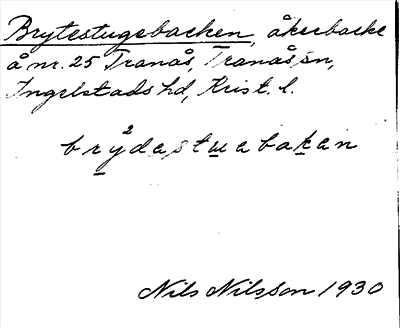 Brytestugebacken, åkerbacke
å nr. 25 Tranås, Tranås sn,
Ingelstads hd, Krist. l.
brỳdastuabakan
Nils Nilsson 1930